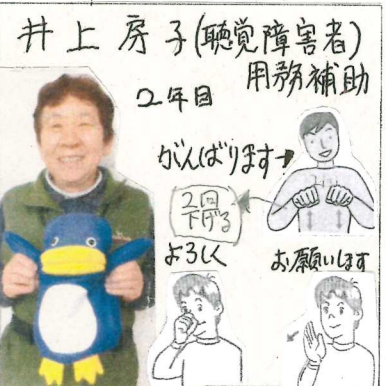 井上房子(聴覚障害者)
用務補助
2年目
がんばります
2回
下げる
よろしく
お願いします